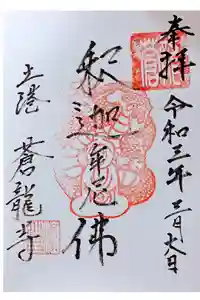 奉拝
令和三年三月大日
釈迦牟尼佛
土港
蒼龍寺